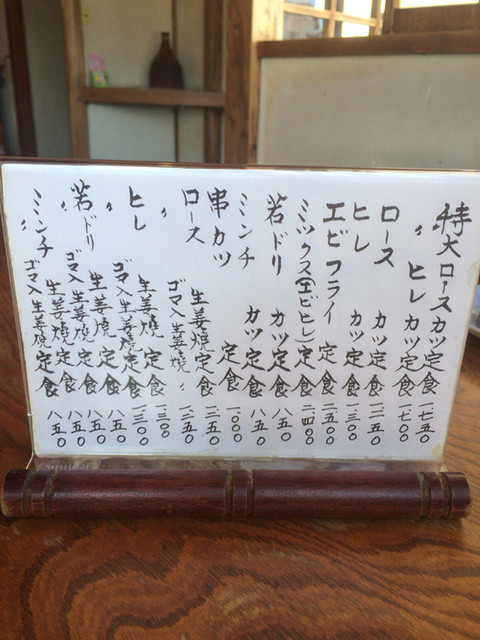 特大ロースカツ定食 一七五〇
〃 ヒレカツ定食 一七〇〇
ロース カツ定食 一二五〇
ヒレ カツ定食 一三〇〇
エビフライ 定食 一五〇〇
ミックス(エビヒレ)定食 一、四〇〇
若ドリ カツ定食 八五〇
ミンチ カツ定食 八五〇
串カツ 定食 一、〇〇〇
ロース 生姜焼定食 一二五〇
〃 ゴマ入生姜焼〃 一二五〇
ヒレ 生姜焼定食 一三〇〇
〃 ゴマ入生姜焼定食 一三〇〇
若ドリ 生姜焼定食 八五〇
〃 ゴマ入生姜焼定食 八五〇
ミンチ 生姜焼定食 八五〇
〃 ゴマ入生姜焼定食 八五〇